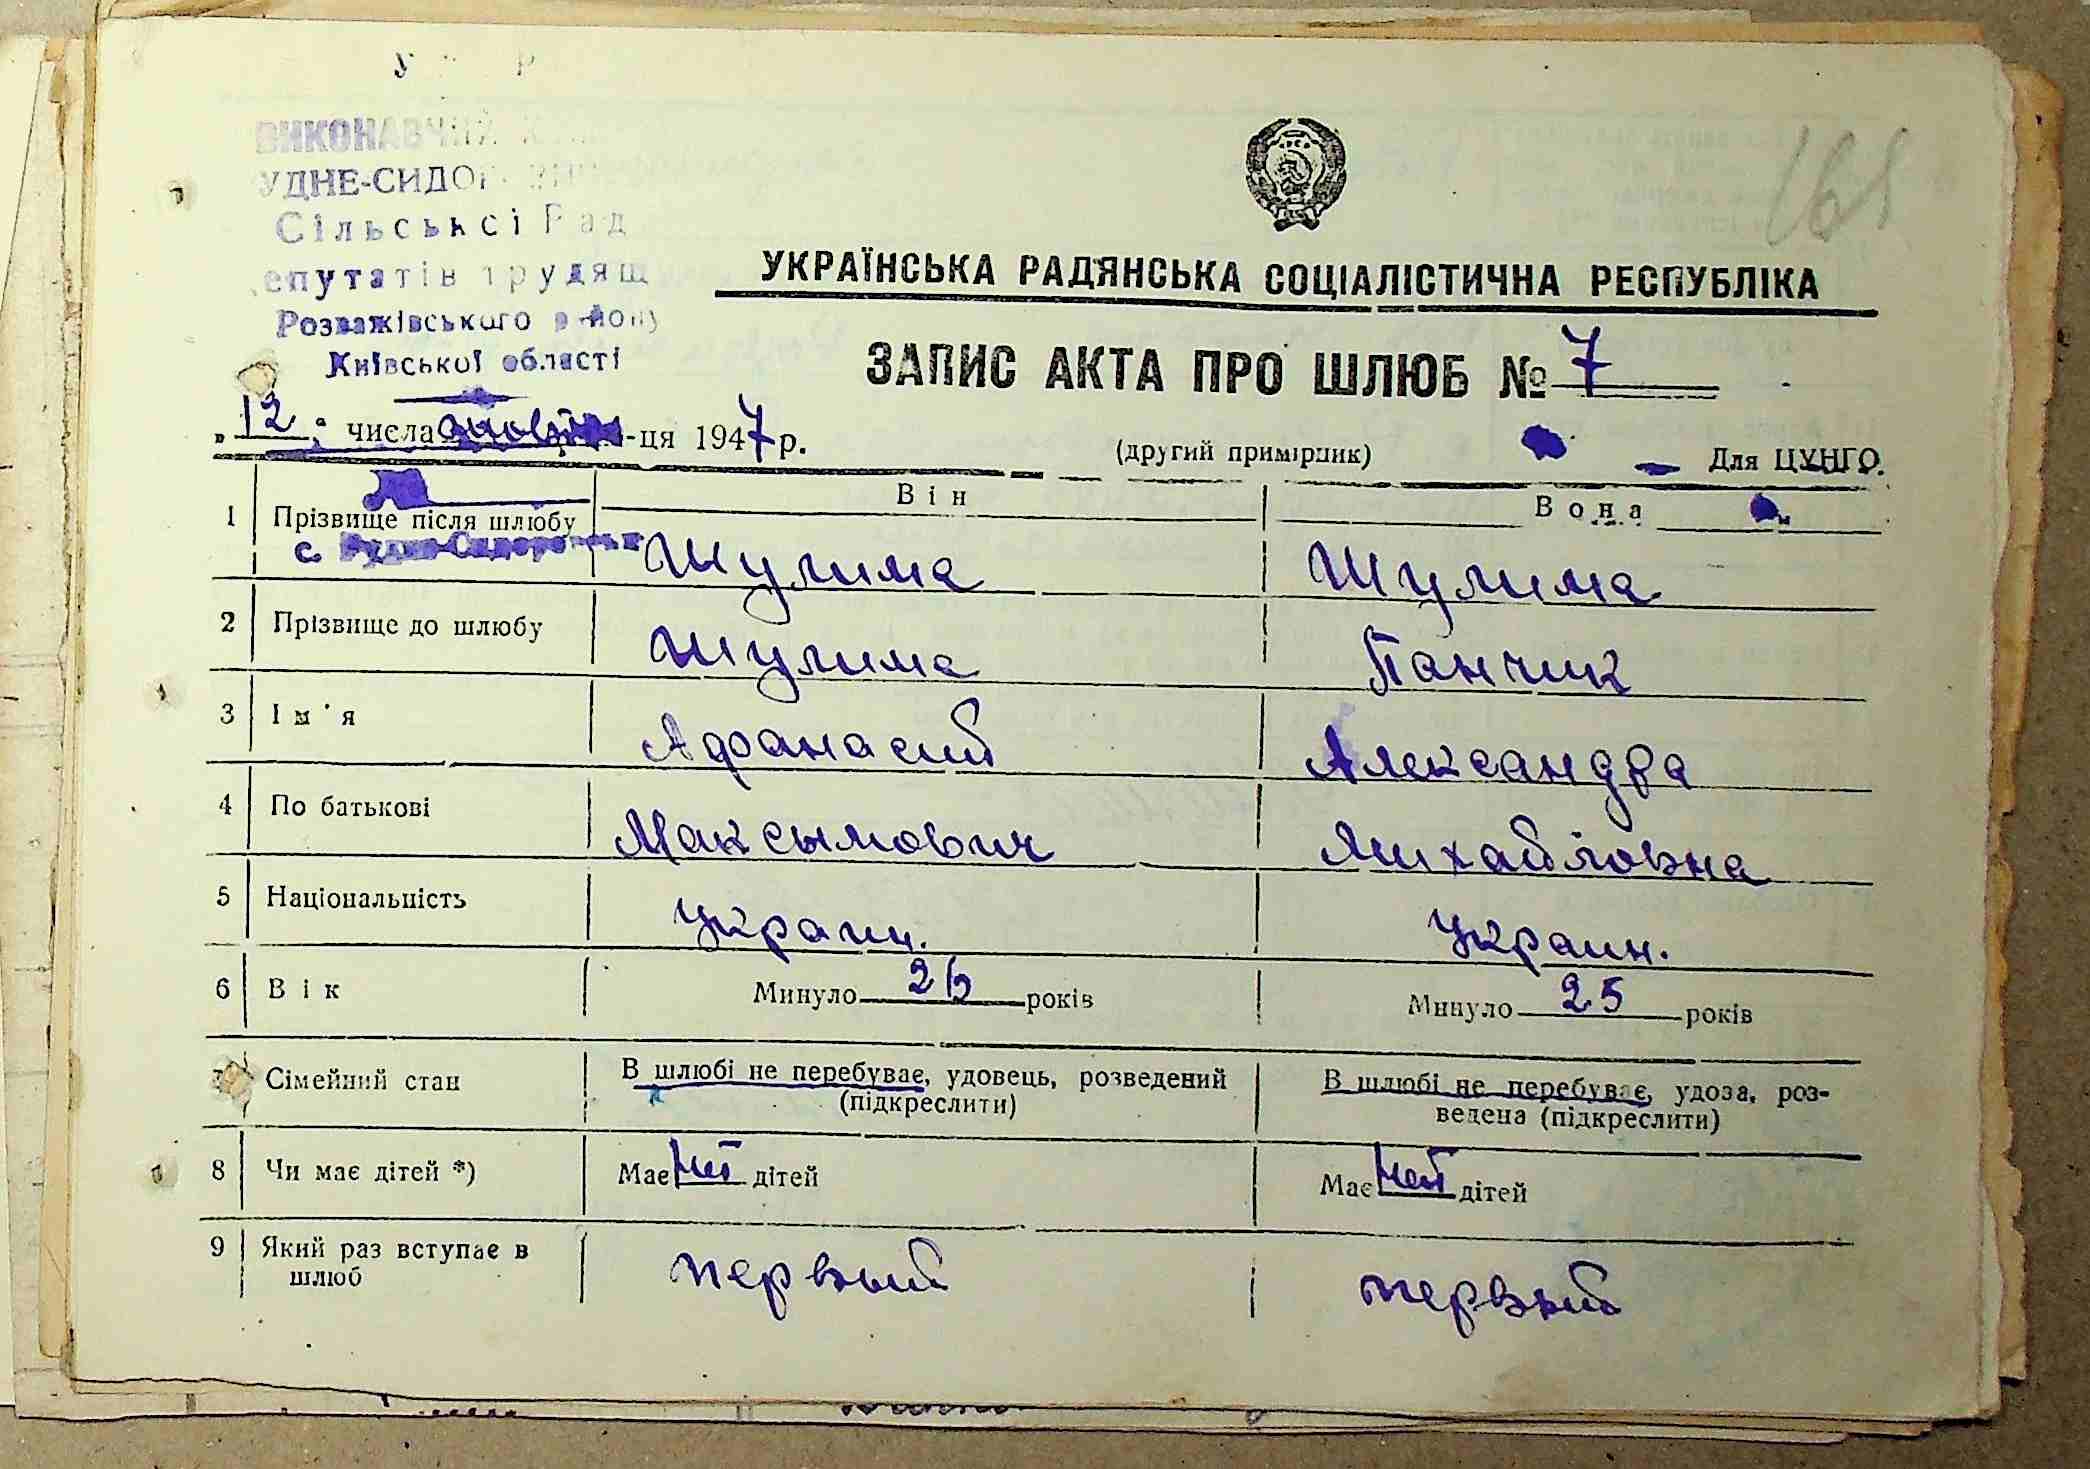 У Р
ВИКОНАВЧИЙ
УДНЕ-СИДОР
Сільської Рад
епутатів трудящ
Розважівського району
Київської області
168
УКРАЇНСЬКА РАДЯНСЬКА СОЦІАЛІСТИЧНА РЕСПУБЛІКА
ЗАПИС АКТА ПРО ШЛЮБ № 7
„12" числа -ця 1947 р.
(другий примірник) Для ЦУНГО.
Він Вона
1 Прізвище після шлюбу Шулима Шулима
с. Рудне-Сидоровськ
2 Прізвище до шлюбу Шулима Панчик
3 Ім'я Афанасий Александра
4 По батькові Максымович Михайловна
5 Національність украин. украин.
6 Вік Минуло 26 років Минуло 25 років
7 Сімейний стан В шлюбі не перебуває, удовець, розведений (підкреслити) В шлюбі не перебуває, удова, роз-
ведена (підкреслити)
8 Чи має дітей *) Має нет дітей Має нет дітей
9 Який раз вступає в шлюб первый первый